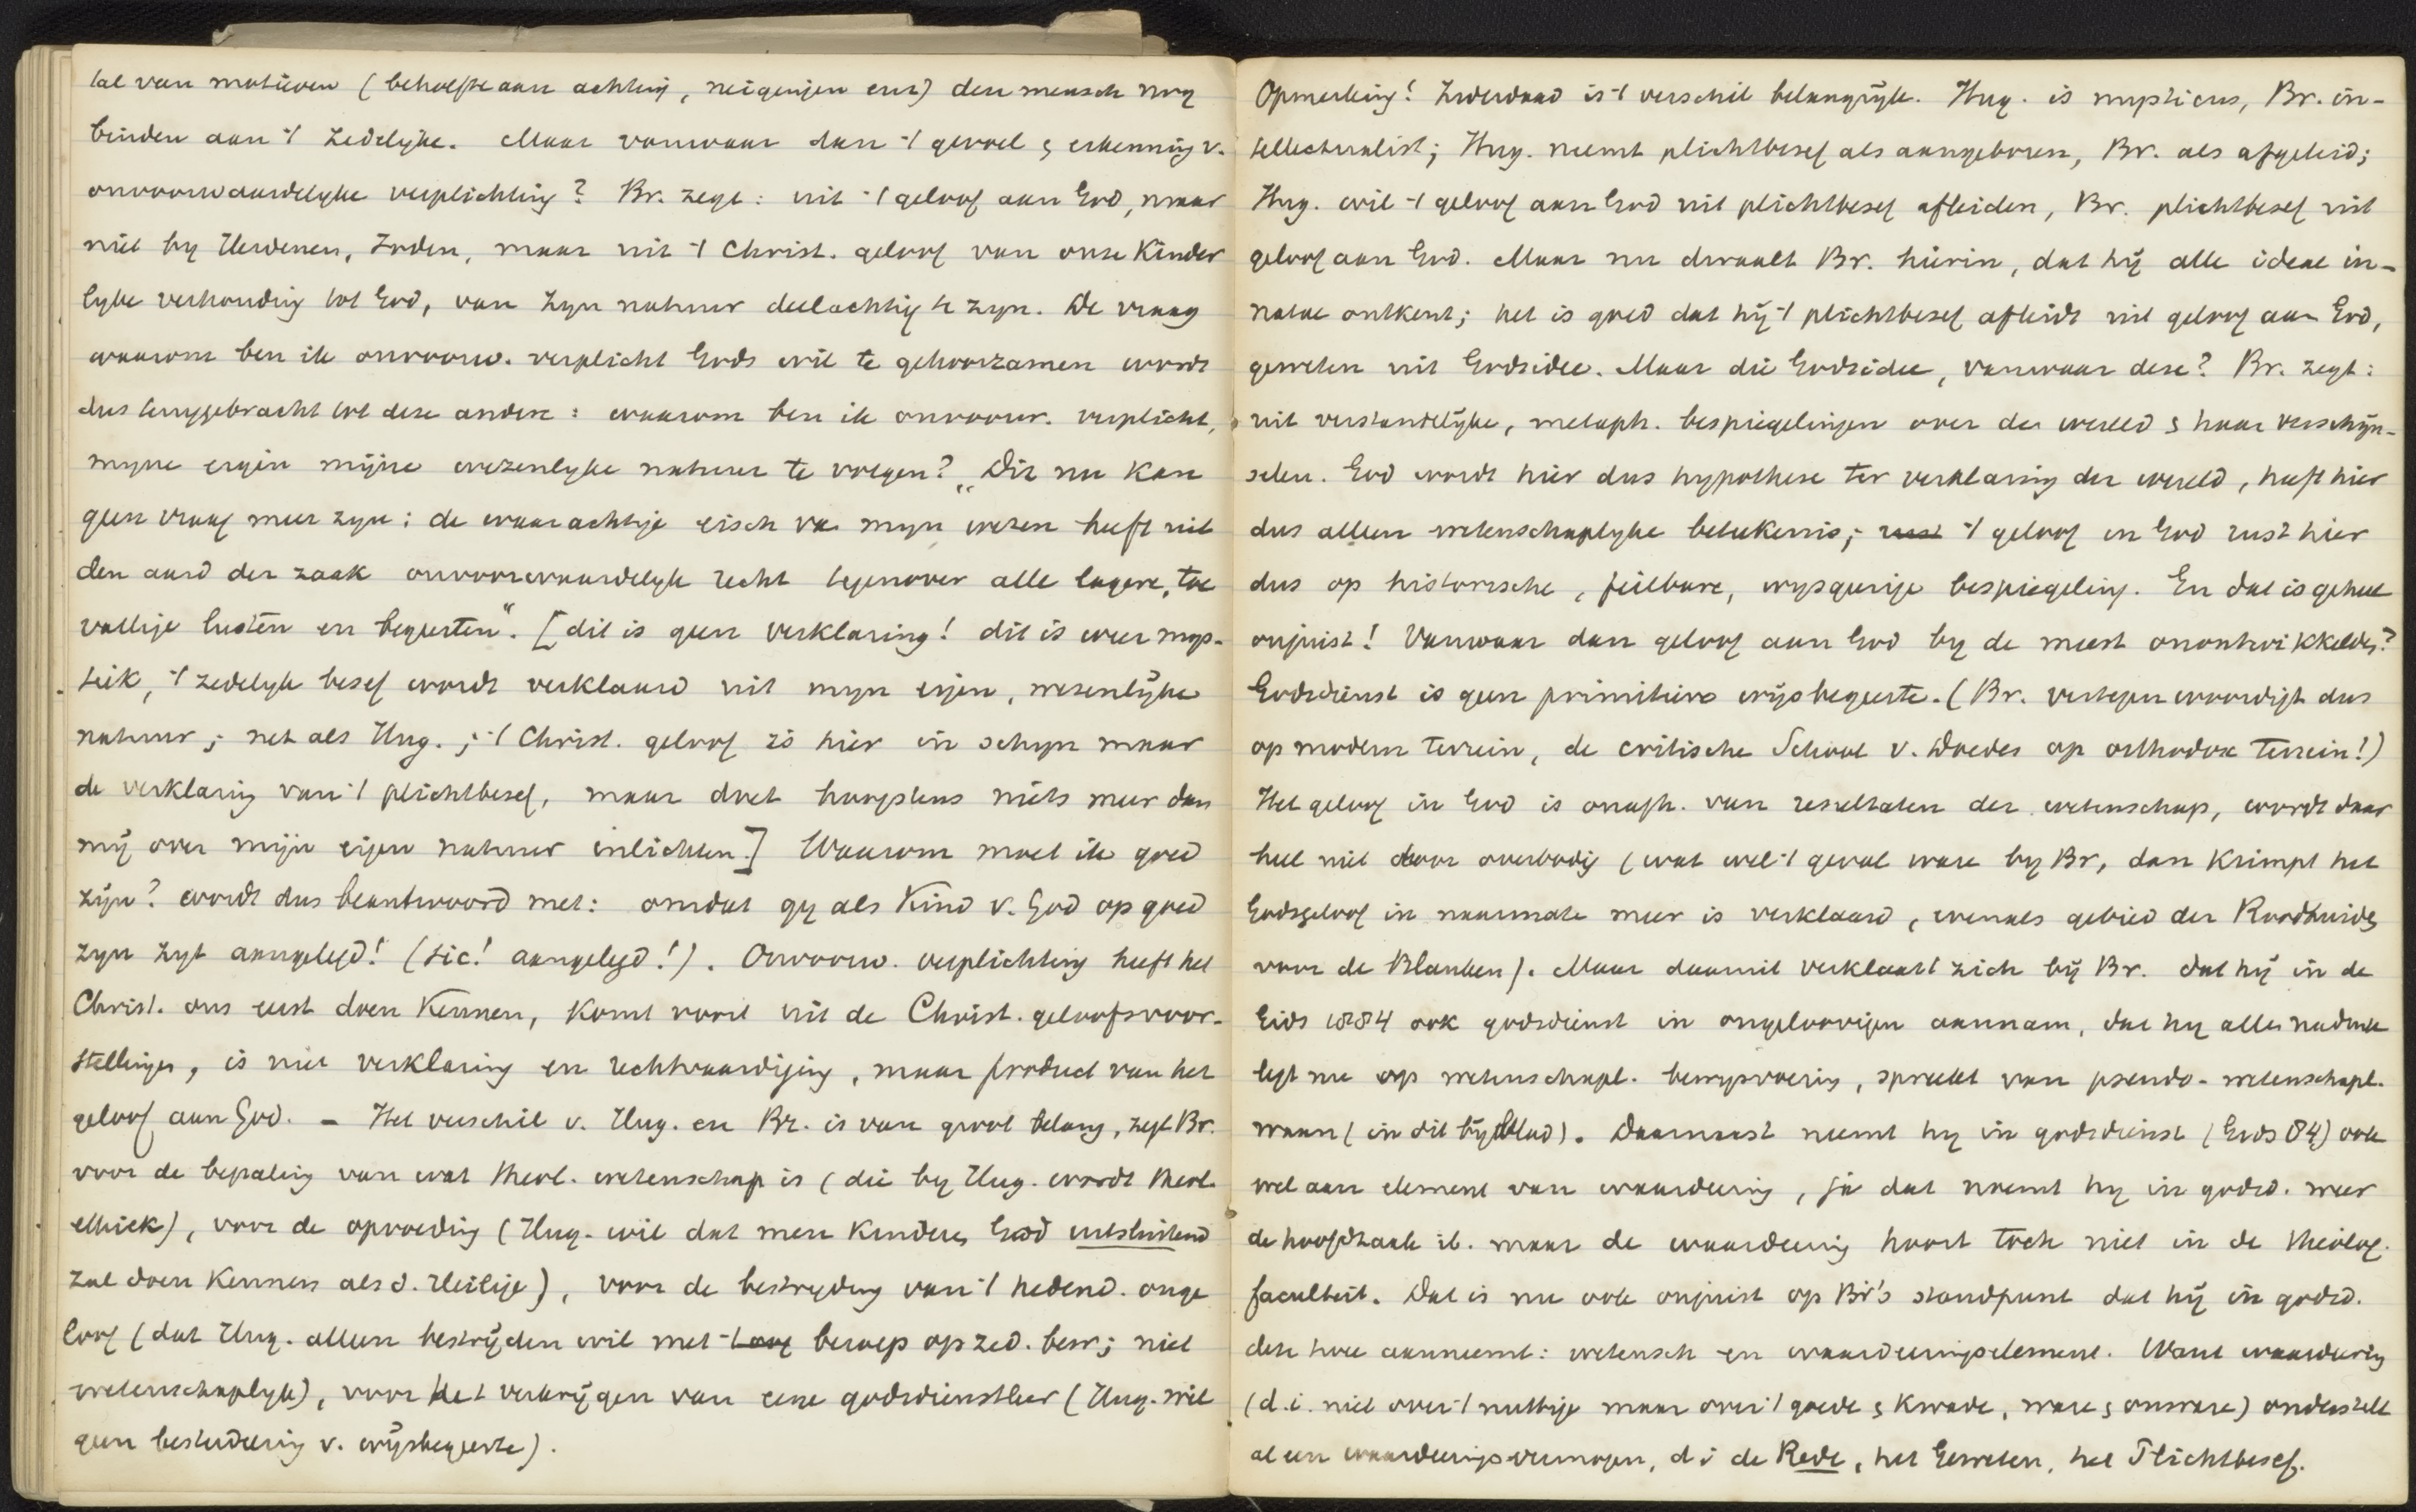 tal van motieven (behoefte aan achting, neigingen enz) den mensch nog
binden aan 't zedelyke. Maar vanwaar dan 't gevoel & erkenning v.
onvoorwaardelyke verplichting? Br. zegt: uit 't geloof aan God, maar
niet by Heidenen, Joden, maar uit 't Christ. geloof van onze Kinder
lyke verhouding tot God, van zyn natuur deelachtig te zyn. De vraag
waarom ben ik onvoorw. verplicht Gods wil te gehoorzamen wordt
dus teruggebracht tot deze andere: waarom ben ik onvoorw. verplicht,
myne eigen mijne wezenlyke natuur te volgen? "Dit nu kan
geen vraag meer zyn: de waarachtige eisch van myn wezen heeft uit
den aard der zaak onvoorwaardelyk recht tegenover alle lagere, toe
vallige lusten en begeerten". [dit is geen verklaring! dit is weer mys-
tiek, 't zedelyk besef wordt verklaard uit myn eigen, wezenlijke
natuur; net als Hug.; 't Christ. geloof is hier in schyn maar
de verklaring van 't plichtbesef, maar doet hoogstens niets meer dan
mij over mijn eigen natuur inlichten.] Waarom moet ik goed
zijn? wordt dus beantwoord met: omdat gy als Kind v. God op goed
zyn zyt aangelegd! (sic! aangelegd!). Onvoorw. verplichting heeft het
Christ. ons eerst doen Kennen, komt voort uit de Christ. geloofsvoor-
stellingen, is niet verklaring en rechtvaardiging, maar product van het
geloof aan God. - Het verschil v. Hug. en Br. is van groot belang, zegt Br.
voor de bepaling van wat theol. wetenschap is (die by Hug. wordt theol.
ethiek), voor de opvoeding (Hug. wil dat men Kinderen God uitsluitend
zal doen Kennen als d. Heilige), voor de bestryding van 't hedend. onge
loof (dat Hug. alleen bestrijden wil met 't beroep op zed. bew; niet
wetenschaplyk), voor het verkrijgen van eene godsdienstleer (Hug. wil
geen bestudeering v. wijsbegeerte).
Opmerking! Inderdaad is 't verschil belangrijk. Hug. is mysticus, Br. in-
tellectualist; Hug. neemt plichtbesef als aangeboren, Br. als afgeleid;
Hug. wil 't geloof aan God uit plichtbesef afleiden, Br. plichtbesef uit
geloof aan God. Maar nu dwaalt Br. hierin, dat hij alle ideae in-
natae ontkent; het is goed dat hij 't plichtbesef afleidt uit geloof aan God,
geweten uit Godsidee. Maar die Godsidee, vanwaar deze? Br. zegt:
uit verstandelijke, metaph. bespiegelingen over de wereld & haar verschijn-
selen. God wordt hier dus hypothese ter verklaring der wereld, heeft hier
dus alleen wetenschaplyke beteekenis; rust 't geloof in God rust hier
dus op historische, feilbare, wysgeerige bespiegeling. En dat is geheel
onjuist! Vanwaar dan geloof aan God by de meest onontwikkelden?
Godsdienst is geen primitieve wijsbegeerte. (Br. vertegenwoordigt dus
op modern terrein, de critische School v. Doedes op orthodox terrein!)
Het geloof in God is onafh. van resultaten der wetenschap, wordt daar
heel niet door overbodig (wat wel 't geval ware by Br, dan krimpt het
Godsgeloof in naarmate meer is verklaard, evenals gebied der Roodhuiden
voor de Blanken). Maar daaruit verklaart zich bij Br. dat hij in de
Gids 1884 ook godsdienst in ongeloovigen aannam, dat hy alle nadruk
legt nu op wetenschapl. bewysvoering, spreekt van pseudo-wetenschapl.
waan (in dit bijblad). Daarnaast neemt hy in godsdienst (Gids 84) ook
wel aan element van waardeering, ja dat noemt hy in godsd. weer
de hoofdzaak ib. maar de waardeering hoort toch niet in de theolog.
faculteit. Dat is nu ook onjuist op Br's standpunt dat hij in godsd.
deze twee aanneemt: wetensch en waardeeringselement. Want waardeering
(d.i. niet over 't nuttige maar over 't goede & Kwade, ware & onware) onderstelt
al een waardeeringsvermogen, d i de Rede, het Geweten, het Plichtbesef.